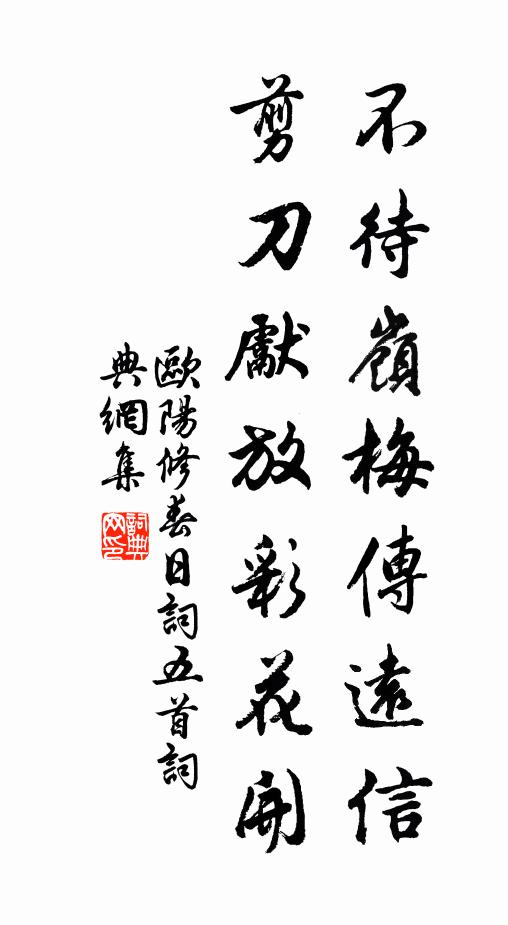 不待嶺梅傳遠信
剪刀獻放彩花開
歐陽修春日詞五首詞
典網集
詞典
网印